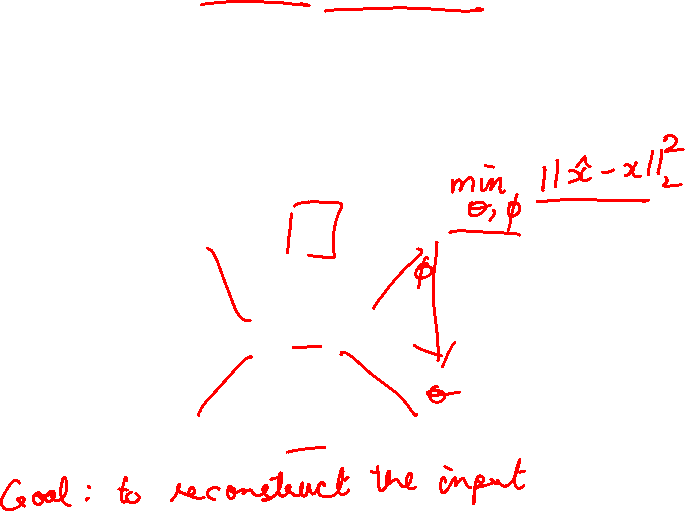 min ||x̂ - x||₂²
θ, φ
φ
θ
Goal: to reconstruct the input